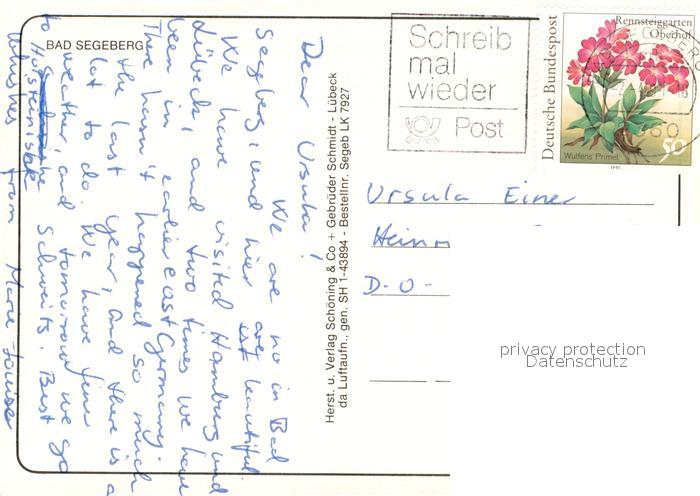 BAD SEGEBERG
Dear Ursula!
We are no in Bad
Segeberg, und hier are beautiful.
We have visited Hamburg und
Lübeck, and two times we have
been in earlier east Germany.
There hasn't happened so much
the last year, and there is a
lot to do. We have fine
weather, and tomorrow we go
to Holsteinische Schweits. Best
whishes from Marie-Louise
Herst. u. Verlag Schöning & Co + Gebrüder Schmidt - Lübeck
da Luftaufn., gen. SH 1-43894 - Bestellnr. Segeb LK 7927
Schreib
mal
wieder
Post
Deutsche Bundespost
Rennsteiggarten
Oberhof
Wulfens Primel
50
1991
Ursula Einer
Hein
D-O-
privacy protection
Datenschutz